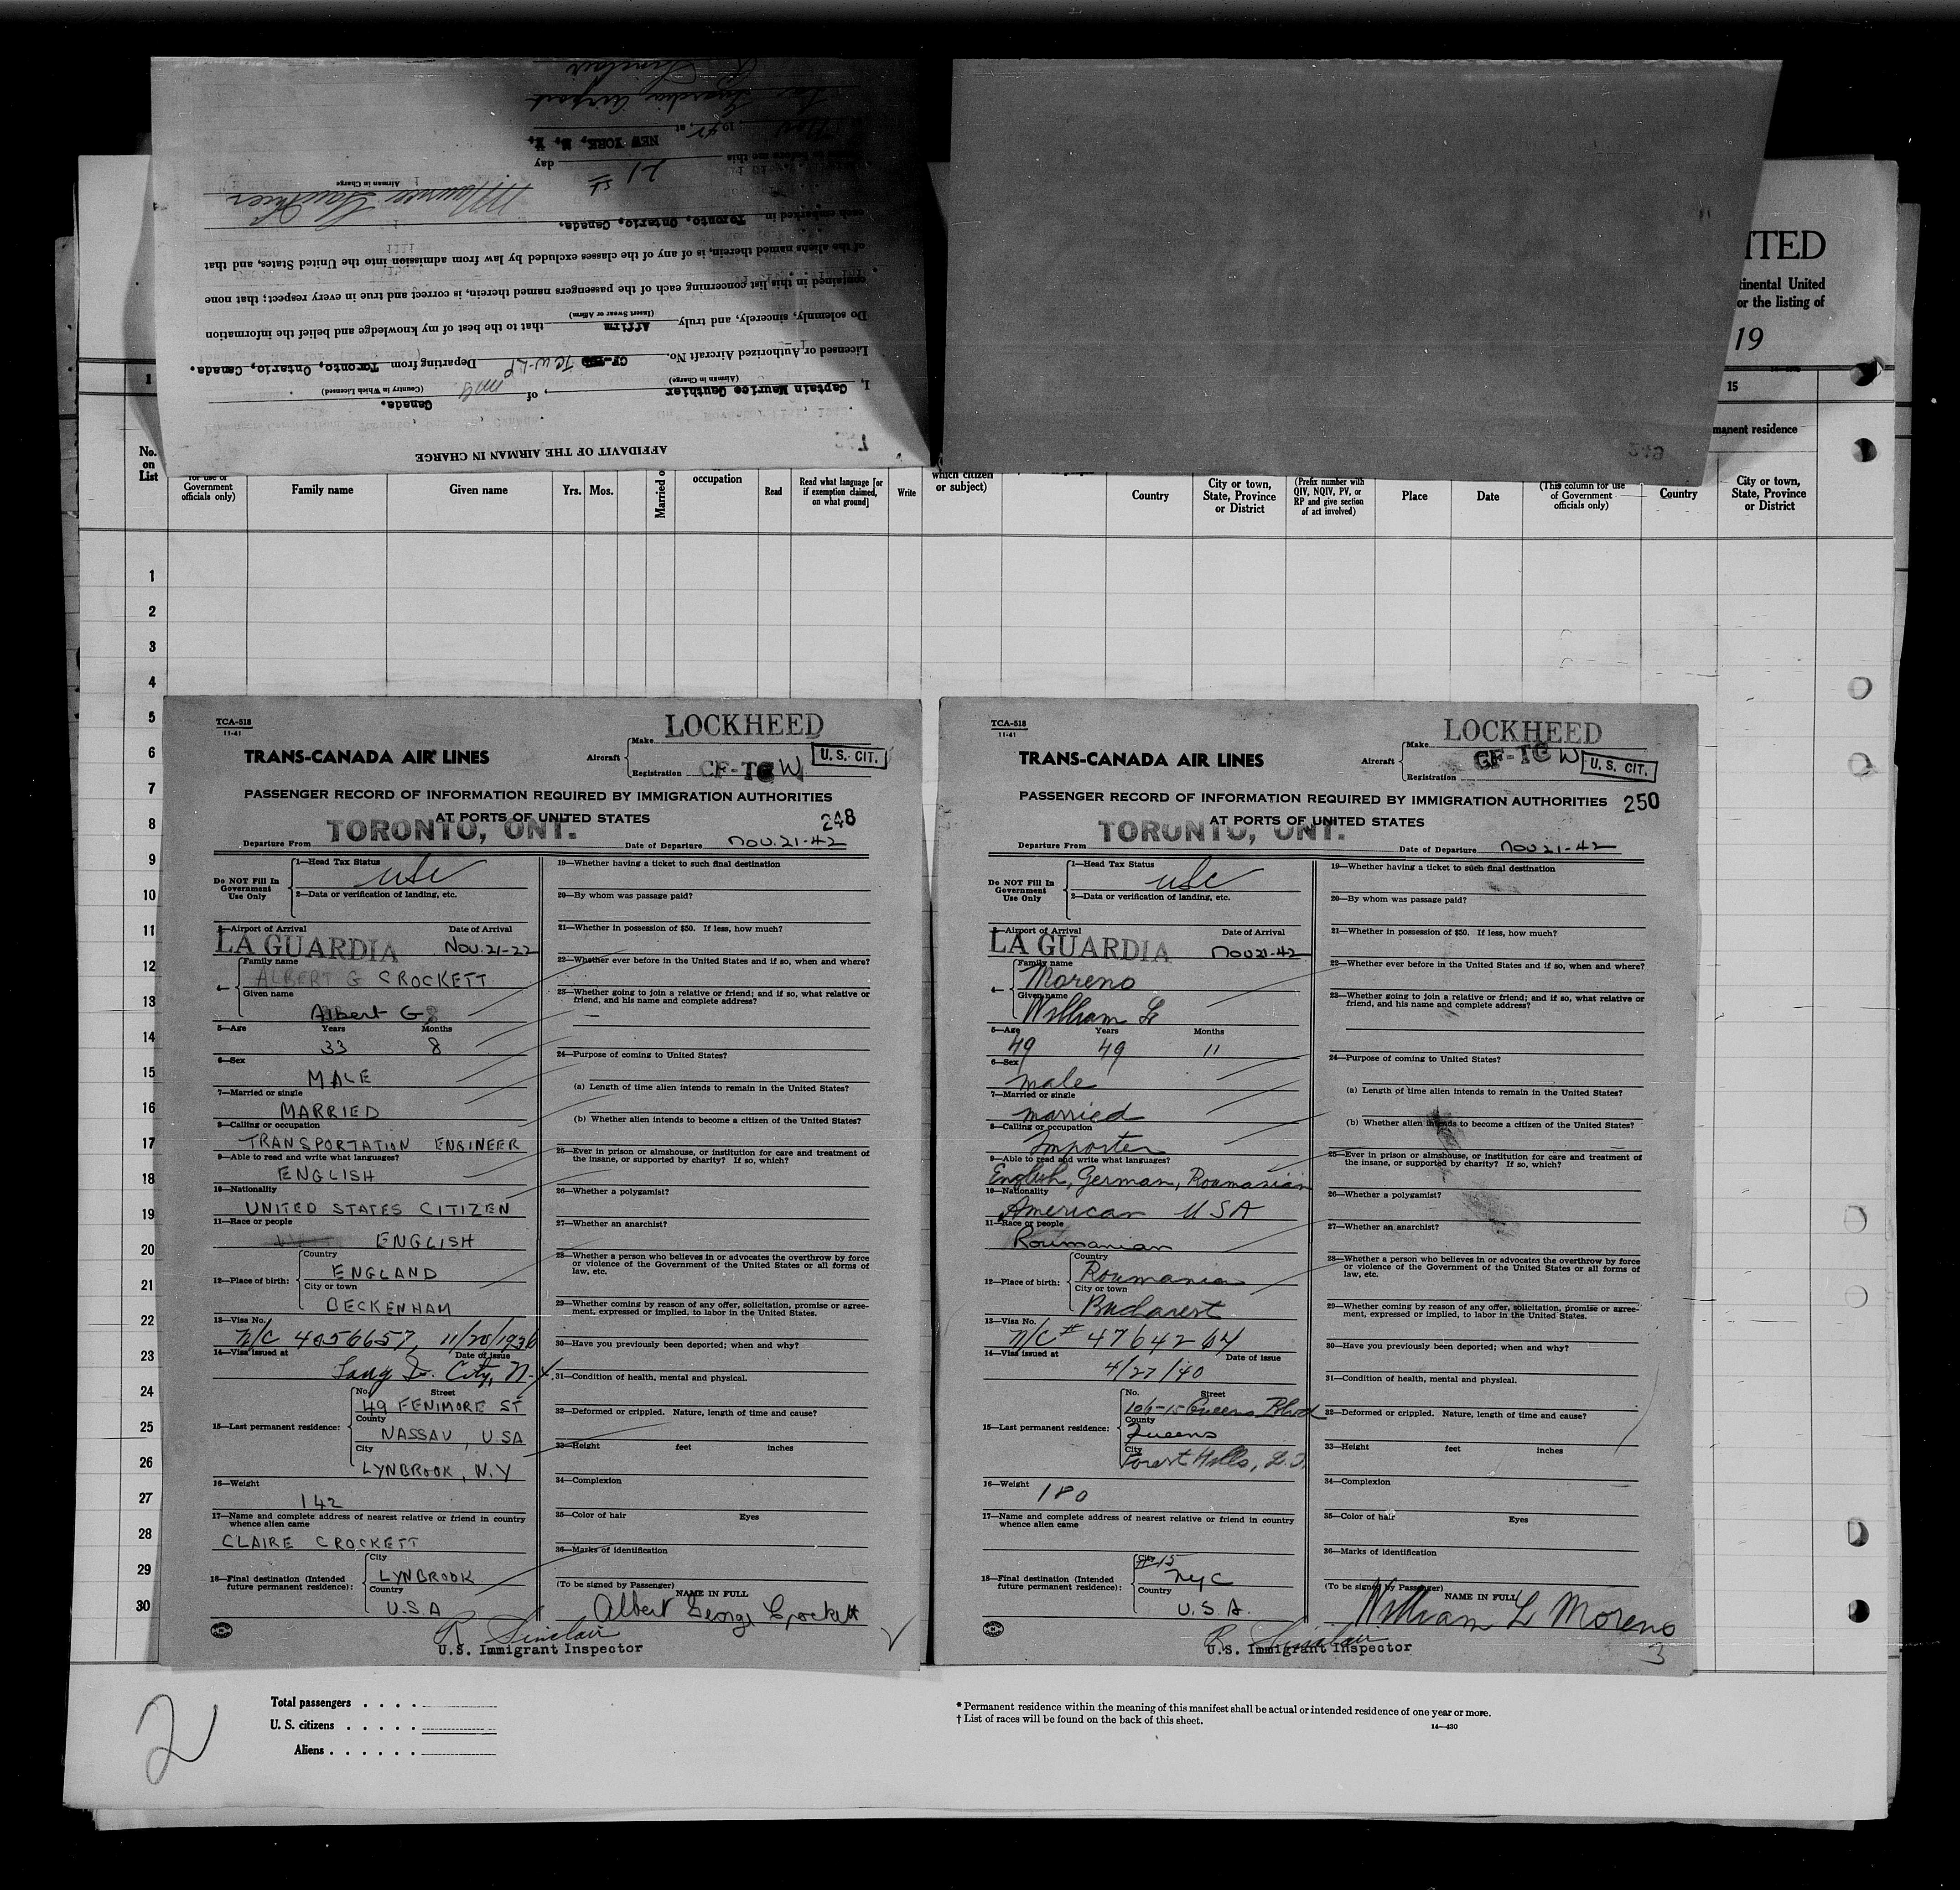 AFFIDAVIT OF THE AIRMAN IN CHARGE
Canada.
I, Captain Maurice Gauthier, of
(Airman in Charge) (Country in Which Licensed)
Licensed or Authorized Aircraft No. CF- TCW-LP Departing from Toronto, Ontario, Canada.
Do solemnly, sincerely, and truly Affirm that to the best of my knowledge and belief the information
(Insert Swear or Affirm)
contained in this list concerning each of the passengers named therein, is correct and true in every respect; that none
of the aliens named therein, is of any of the classes excluded by law from admission into the United States, and that
each embarked in Toronto, Ontario, Canada.
Maurice Gauthier
Airman in Charge
before me this 21st day
NEW YORK, N. Y.
Nov 1942, at
La Guardia Airport
R Sinclair
249
ITED
tinental United
or the listing of
19
1
15
manent residence
No. on List
for use of Government officials only)
Family name
Given name
Yrs.
Mos.
Married o
occupation
Read
Read what language [or if exemption claimed, on what ground]
Write
which citizen or subject)
Country
City or town, State, Province or District
(Prefix number with QIV, NQIV, PV, or RP and give section of act involved)
Place
Date
(This column for use of Government officials only)
Country
City or town, State, Province or District
1
2
3
4
5
6
7
8
9
10
11
12
13
14
15
16
17
18
19
20
21
22
23
24
25
26
27
28
29
30
TCA-518
11-41
LOCKHEED
TRANS-CANADA AIR LINES
Aircraft
Make
Registration CF-TCW
U. S. CIT.
PASSENGER RECORD OF INFORMATION REQUIRED BY IMMIGRATION AUTHORITIES
AT PORTS OF UNITED STATES
248
Departure From TORONTO, ONT.
Date of Departure NOV. 21-42
Do NOT Fill In Government Use Only
1—Head Tax Status
USC
2—Data or verification of landing, etc.
3—Airport of Arrival Date of Arrival
LA GUARDIA NOV. 21-22
4—
Family name
ALBERT G CROCKETT
Given name
Albert G
5—Age Years Months
33 8
6—Sex
MALE
7—Married or single
MARRIED
8—Calling or occupation
TRANSPORTATION ENGINEER
9—Able to read and write what languages?
ENGLISH
10—Nationality
UNITED STATES CITIZEN
11—Race or people
ENGLISH
12—Place of birth:
Country
ENGLAND
City or town
BECKENHAM
13—Visa No.
N/C 4056657, 11/20/1936
14—Visa issued at Date of issue
Long I. City, N.Y.
15—Last permanent residence:
No. Street
49 FENIMORE ST
County
NASSAU, USA
City
LYNBROOK, N.Y
16—Weight
142
17—Name and complete address of nearest relative or friend in country whence alien came
CLAIRE CROCKETT
18—Final destination (Intended future permanent residence):
City
LYNBROOK
Country
U.S.A
19—Whether having a ticket to such final destination
20—By whom was passage paid?
21—Whether in possession of $50. If less, how much?
22—Whether ever before in the United States and if so, when and where?
23—Whether going to join a relative or friend; and if so, what relative or friend, and his name and complete address?
24—Purpose of coming to United States?
(a) Length of time alien intends to remain in the United States?
(b) Whether alien intends to become a citizen of the United States?
25—Ever in prison or almshouse, or institution for care and treatment of the insane, or supported by charity? If so, which?
26—Whether a polygamist?
27—Whether an anarchist?
28—Whether a person who believes in or advocates the overthrow by force or violence of the Government of the United States or all forms of law, etc.
29—Whether coming by reason of any offer, solicitation, promise or agreement, expressed or implied, to labor in the United States.
30—Have you previously been deported; when and why?
31—Condition of health, mental and physical.
32—Deformed or crippled. Nature, length of time and cause?
33—Height feet inches
34—Complexion
35—Color of hair Eyes
36—Marks of identification
(To be signed by Passenger)
NAME IN FULL
Albert George Crockett
R. Sinclair
U.S. Immigrant Inspector
TCA-518
11-41
LOCKHEED
TRANS-CANADA AIR LINES
Aircraft
Make
Registration CF-TCW
U. S. CIT.
PASSENGER RECORD OF INFORMATION REQUIRED BY IMMIGRATION AUTHORITIES
AT PORTS OF UNITED STATES
250
Departure From TORONTO, ONT.
Date of Departure NOV 21-42
Do NOT Fill In Government Use Only
1—Head Tax Status
USC
2—Data or verification of landing, etc.
3—Airport of Arrival Date of Arrival
LA GUARDIA NOV 21-42
4—
Family name
Moreno
Given name
William L
5—Age Years Months
49 49 11
6—Sex
male
7—Married or single
married
8—Calling or occupation
Importer
9—Able to read and write what languages?
English, German, Roumanian
10—Nationality
American USA
11—Race or people
Roumanian
12—Place of birth:
Country
Roumania
City or town
Bucharest
13—Visa No.
N/C # 4764264
14—Visa issued at Date of issue
4/27/40
15—Last permanent residence:
No. Street
106-15 Queens Blvd
County
Queens
City
Forest Hills, L.I.
16—Weight
180
17—Name and complete address of nearest relative or friend in country whence alien came
18—Final destination (Intended future permanent residence):
City
NyC
Country
U.S.A.
19—Whether having a ticket to such final destination
20—By whom was passage paid?
21—Whether in possession of $50. If less, how much?
22—Whether ever before in the United States and if so, when and where?
23—Whether going to join a relative or friend; and if so, what relative or friend, and his name and complete address?
24—Purpose of coming to United States?
(a) Length of time alien intends to remain in the United States?
(b) Whether alien intends to become a citizen of the United States?
25—Ever in prison or almshouse, or institution for care and treatment of the insane, or supported by charity? If so, which?
26—Whether a polygamist?
27—Whether an anarchist?
28—Whether a person who believes in or advocates the overthrow by force or violence of the Government of the United States or all forms of law, etc.
29—Whether coming by reason of any offer, solicitation, promise or agreement, expressed or implied, to labor in the United States.
30—Have you previously been deported; when and why?
31—Condition of health, mental and physical.
32—Deformed or crippled. Nature, length of time and cause?
33—Height feet inches
34—Complexion
35—Color of hair Eyes
36—Marks of identification
(To be signed by Passenger)
NAME IN FULL
William L Moreno
R. Sinclair
U.S. Immigrant Inspector
3
2
Total passengers . . . .
U. S. citizens . . . . .
Aliens . . . . . .
* Permanent residence within the meaning of this manifest shall be actual or intended residence of one year or more.
† List of races will be found on the back of this sheet.
14—430